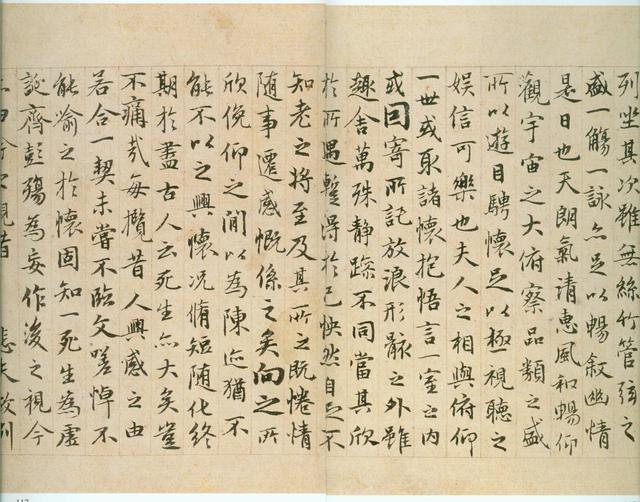 列坐其次雖無絲竹管弦之
盛一觴一詠亦足以暢敘幽情
是日也天朗氣清惠風和暢仰
觀宇宙之大俯察品類之盛
所以遊目騁懷足以極視聽之
娛信可樂也夫人之相與俯仰
一世或取諸懷抱悟言一室之內
或因寄所託放浪形骸之外雖
趣舍萬殊靜躁不同當其欣
於所遇暫得於己怏然自足不
知老之將至及其所之既惓情
随事遷感慨係之矣向之所
欣俛仰之間以為陳迹猶不
能不以之興懷况脩短随化終
期於盡古人云死生亦大矣豈
不痛哉每攬昔人興感之由
若合一契未嘗不臨文嗟悼不
能喻之於懷固知一死生為虛
誕齊彭殤為妄作後之視今
由今之視昔悲夫故列